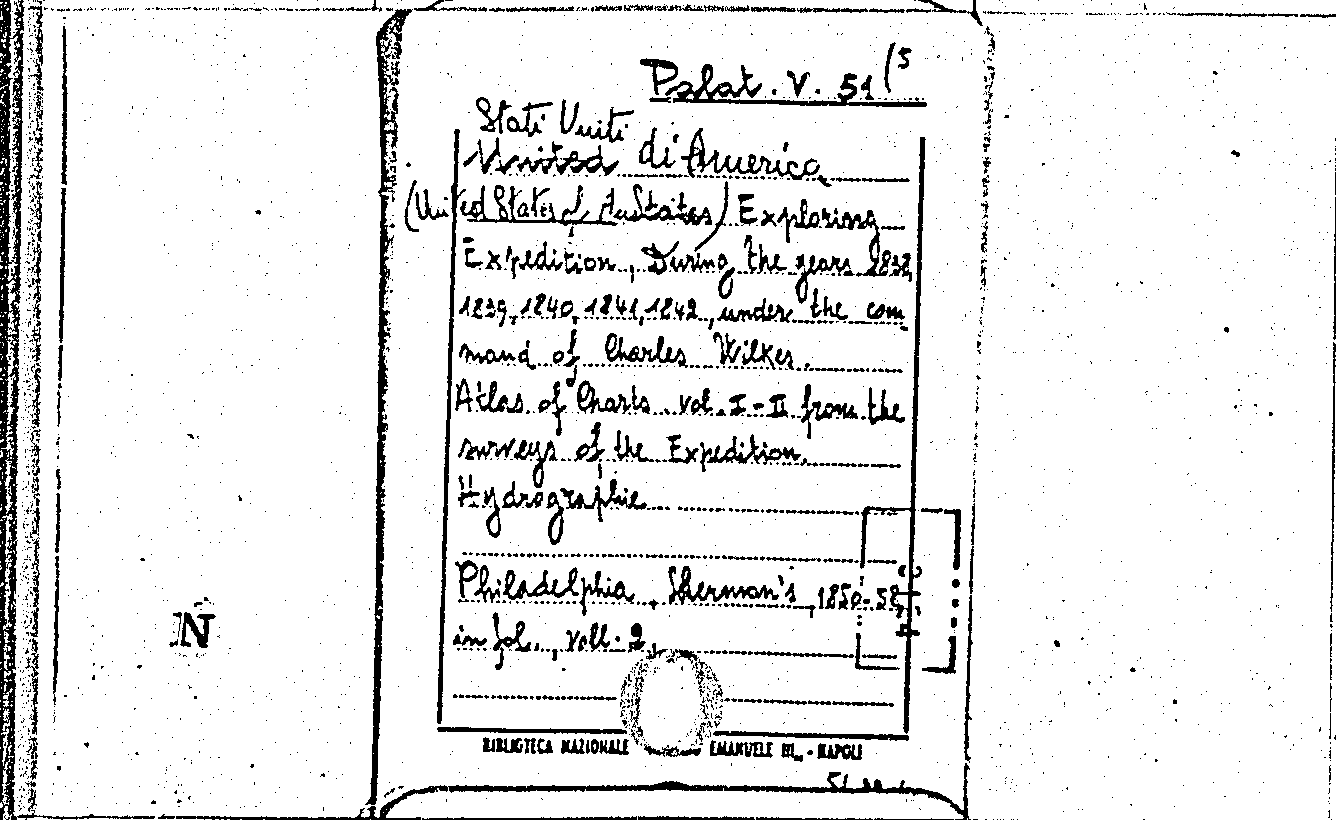 Palat. V. 51 (5
Stati Uniti
United di America
(United States of Exploring
Expedition, During the years 1838,
1839, 1840, 1841, 1842, under the com
mand of Charles Wilkes.
Atlas of Charts. vol. I-II from the
surveys of the Expedition.
Hydrographie
Philadelphia, Sherman's, 1850-58,
in fol., voll. 2,
BIBLIOTECA NAZIONALE EMANUELE III - NAPOLI
N